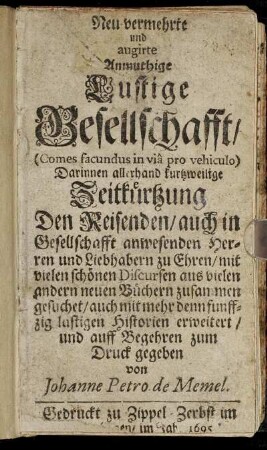 Neu vermehrte
und
augirte
Anmuthige
Lustige
Gesellschafft/
(Comes facundus in viâ pro vehiculo)
Darinnen allerhand kurtzweilige
Zeitkürtzung
Den Reisenden/auch in
Gesellschafft anwesenden Her-
ren und Liebhabern zu Ehren/mit
vielen schönen Discursen aus vielen
andern neuen Büchern zusammen
gesuchet/auch mit mehr denn funff-
zig lustigen Historien erweitert/
und auff Begehren zum
Druck gegeben
von
Johanne Petro de Memel.
Gedruckt zu Zippel-Zerbst im
/im Jahr 1695